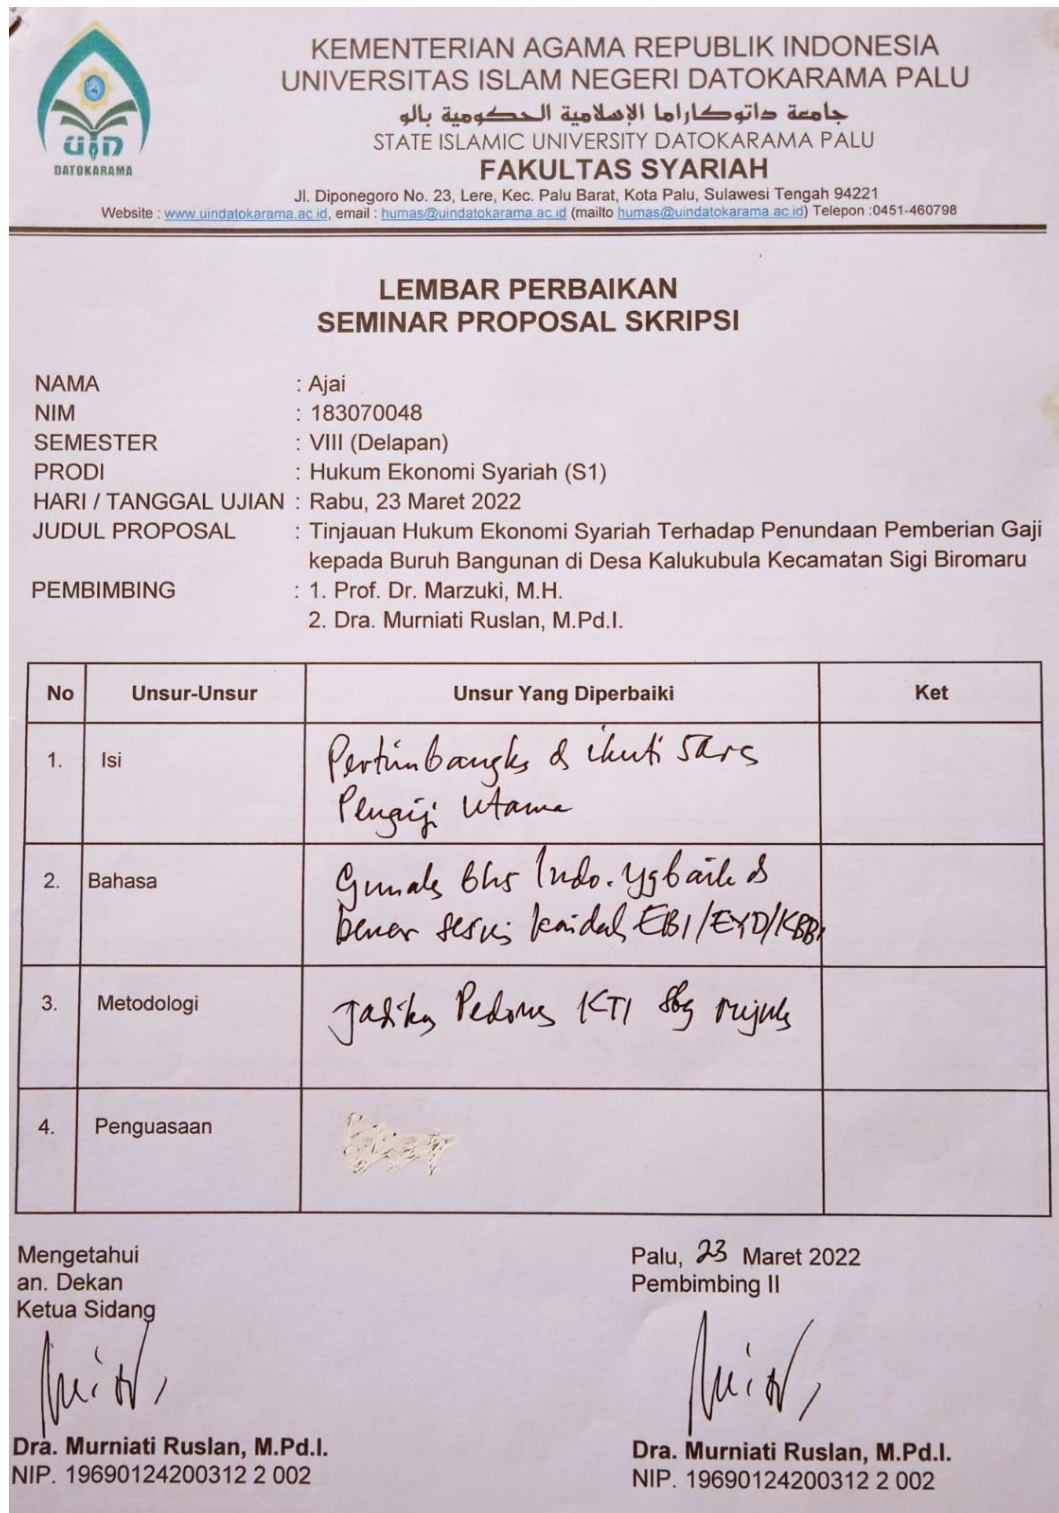 KEMENTERIAN AGAMA REPUBLIK INDONESIA
UNIVERSITAS ISLAM NEGERI DATOKARAMA PALU
جامعة داتوكاراما الإسلامية الحكومية بالو
STATE ISLAMIC UNIVERSITY DATOKARAMA PALU
FAKULTAS SYARIAH
Jl. Diponegoro No. 23, Lere, Kec. Palu Barat, Kota Palu, Sulawesi Tengah 94221
Website : www.uindatokarama.ac.id, email : humas@uindatokarama.ac.id (mailto humas@uindatokarama.ac.id) Telepon :0451-460798
UIN
DATOKARAMA
LEMBAR PERBAIKAN
SEMINAR PROPOSAL SKRIPSI
NAMA : Ajai
NIM : 183070048
SEMESTER : VIII (Delapan)
PRODI : Hukum Ekonomi Syariah (S1)
HARI / TANGGAL UJIAN : Rabu, 23 Maret 2022
JUDUL PROPOSAL : Tinjauan Hukum Ekonomi Syariah Terhadap Penundaan Pemberian Gaji
kepada Buruh Bangunan di Desa Kalukubula Kecamatan Sigi Biromaru
PEMBIMBING : 1. Prof. Dr. Marzuki, M.H.
2. Dra. Murniati Ruslan, M.Pd.I.
No Unsur-Unsur Unsur Yang Diperbaiki Ket
1. Isi Pertimbangkn & ikuti saran
Penguji Utama
2. Bahasa Gunakn bhs Indo. yg baik &
benar sesuai kaidah EBI/EYD/KBBI
3. Metodologi Jadikn Pedoman KTI sbg rujukn
4. Penguasaan
Mengetahui
an. Dekan
Ketua Sidang
Dra. Murniati Ruslan, M.Pd.I.
NIP. 19690124200312 2 002
Palu, 23 Maret 2022
Pembimbing II
Dra. Murniati Ruslan, M.Pd.I.
NIP. 19690124200312 2 002